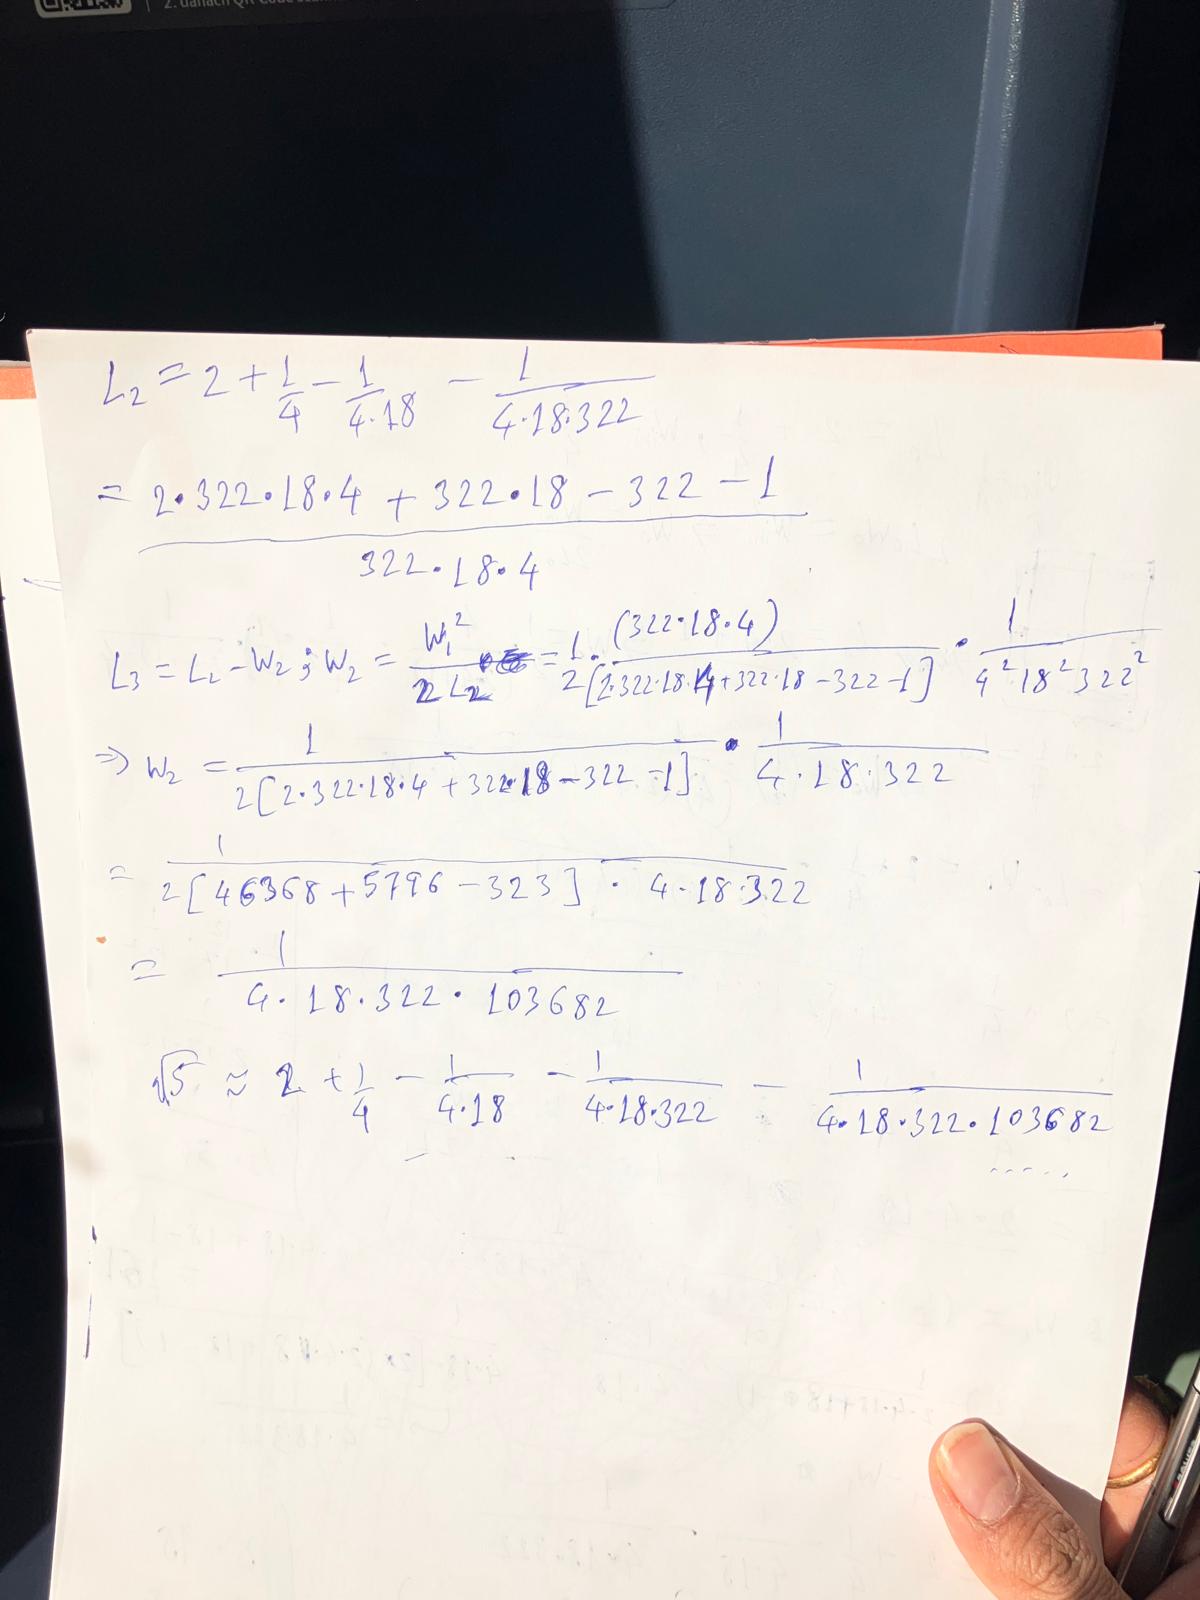 2. danach QR-Code
L₂ = 2 + 1/4 − 1/(4·18) − 1/(4·18·322)
= (2·322·18·4 + 322·18 − 322 − 1)/(322·18·4)
L₃ = L₂ − W₂ ; W₂ = W₁²/(2L₂) = 1/2 · (322·18·4)/[2·322·18·4+322·18−322−1] · 1/(4²18²322²)
⇒ W₂ = 1/(2[2·322·18·4 + 322·18 − 322 − 1]) · 1/(4·18·322)
= 1/(2[46368 + 5796 − 323] · 4·18·322)
= 1/(4·18·322·103682)
√5 ≈ 2 + 1/4 − 1/(4·18) − 1/(4·18·322) − 1/(4·18·322·103682) .....